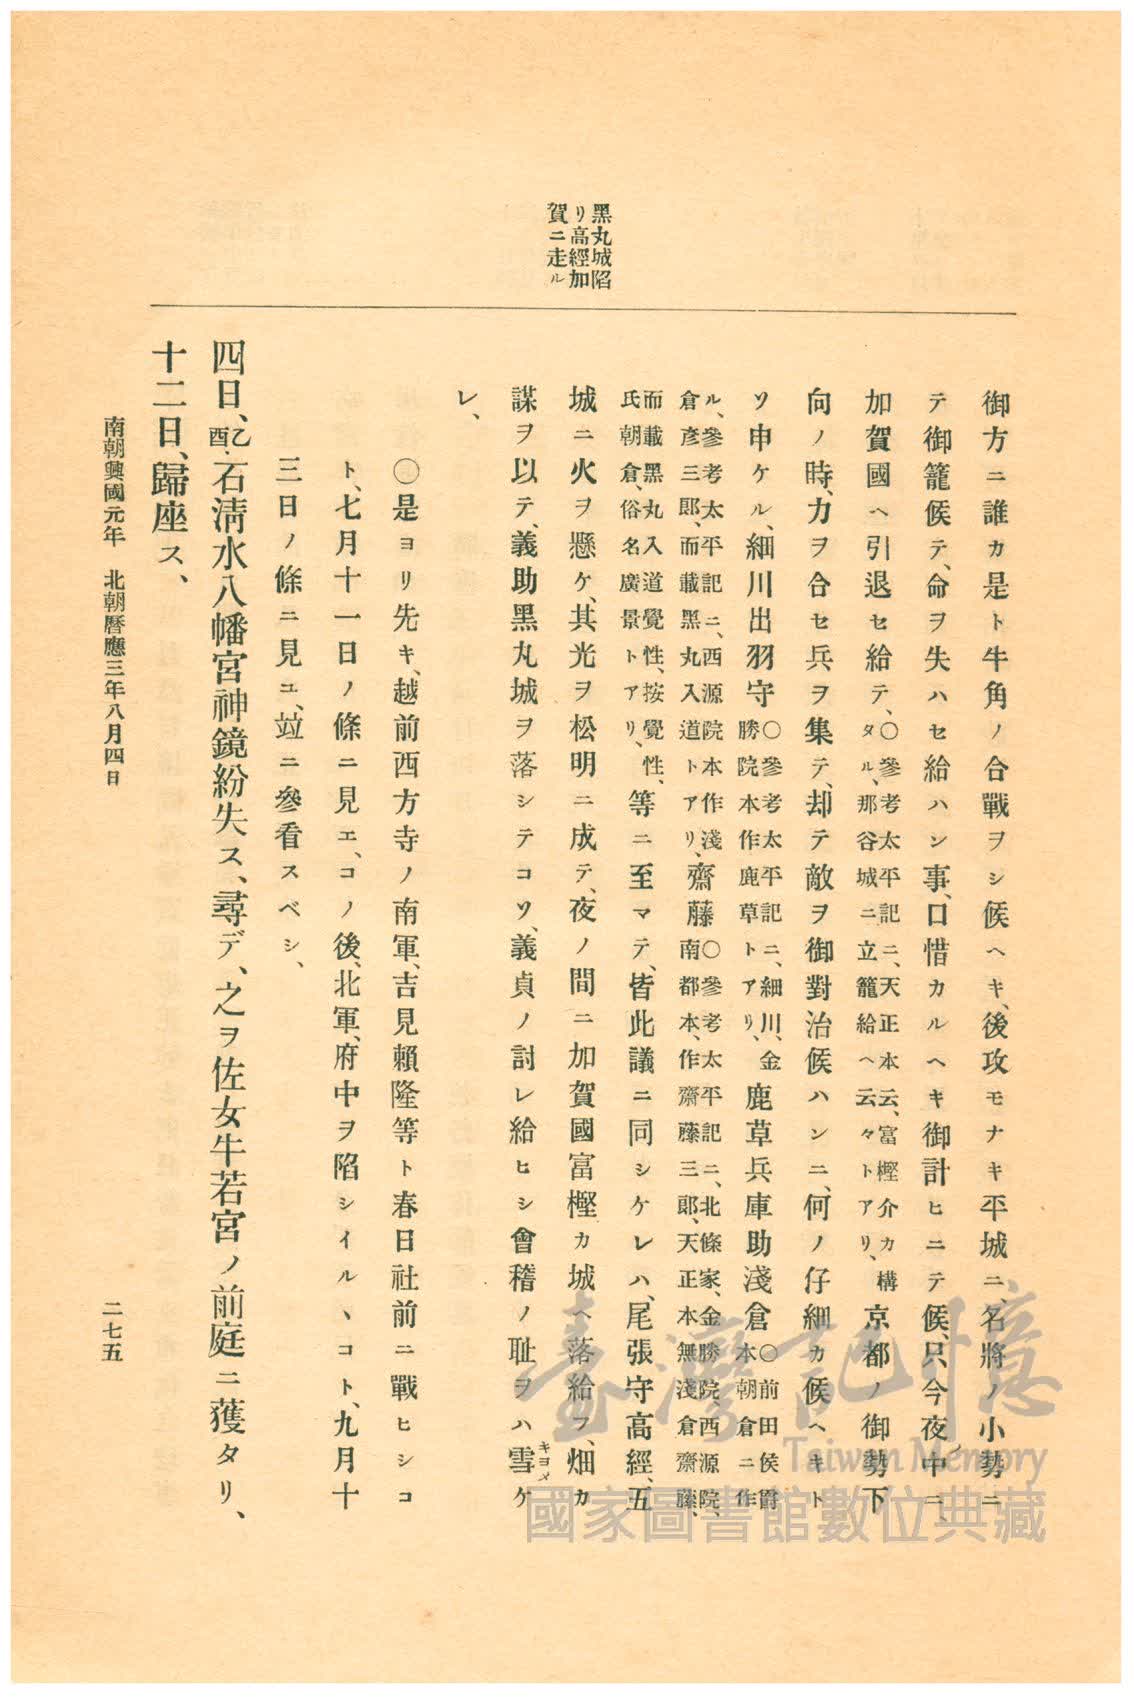 黑丸城陷
リ高經加
賀ニ走ル
御方ニ誰カ是ト牛角ノ合戰ヲシ候ヘキ、後攻モナキ平城ニ、名將ノ小勢ニ
テ御籠候テ、命ヲ失ハセ給ハン事、口惜カルヘキ御計ヒニテ候、只今夜ノ中ニ、
加賀國ヘ引退セ給テ、〇參考太平記ニ、天正本云、富樫介カ構
タル、那谷城ニ立籠給ヘ云々トアリ、京都ノ御勢下
向ノ時、力ヲ合セ兵ヲ集テ、却テ敵ヲ御對治候ハンニ、何ノ仔細カ候ヘキト
ソ申ケル、細川出羽守〇參考太平記ニ、細川、金
勝院本作鹿草トアリ、鹿草兵庫助淺倉〇前田侯爵
本朝倉ニ作
ル、參考太平記ニ、西源院本作淺
倉彥三郎、而載黑丸入道トアリ、齋藤〇參考太平記ニ、北條家、金勝院、西源院、
南都本、作齋藤三郎、天正本無淺倉齋藤、
而載黑丸入道覺性、按覺性、
氏朝倉、俗名廣景トアリ、等ニ至マテ、皆此議ニ同シケレハ、尾張守高經、五
城ニ火ヲ懸ケ、其光ヲ松明ニ成テ、夜ノ間ニ加賀國富樫カ城ヘ落給フ、畑カ
謀ヲ以テ、義助黑丸城ヲ落シテコソ、義貞ノ討レ給ヒシ會稽ノ耻ヲハ雪キヨメケ
レ、
〇是ヨリ先キ、越前西方寺ノ南軍、吉見賴隆等ト春日社前ニ戰ヒシコ
ト、七月十一日ノ條ニ見エ、コノ後、北軍、府中ヲ陷シイルヽコト、九月十
三日ノ條ニ見ユ、竝ニ參看スベシ、
四日、乙酉、石淸水八幡宮神鏡紛失ス、尋デ、之ヲ佐女牛若宮ノ前庭ニ獲タリ、
十二日、歸座ス、
南朝興國元年 北朝曆應三年八月四日
二七五
臺灣記憶
Taiwan Memory
國家圖書館數位典藏